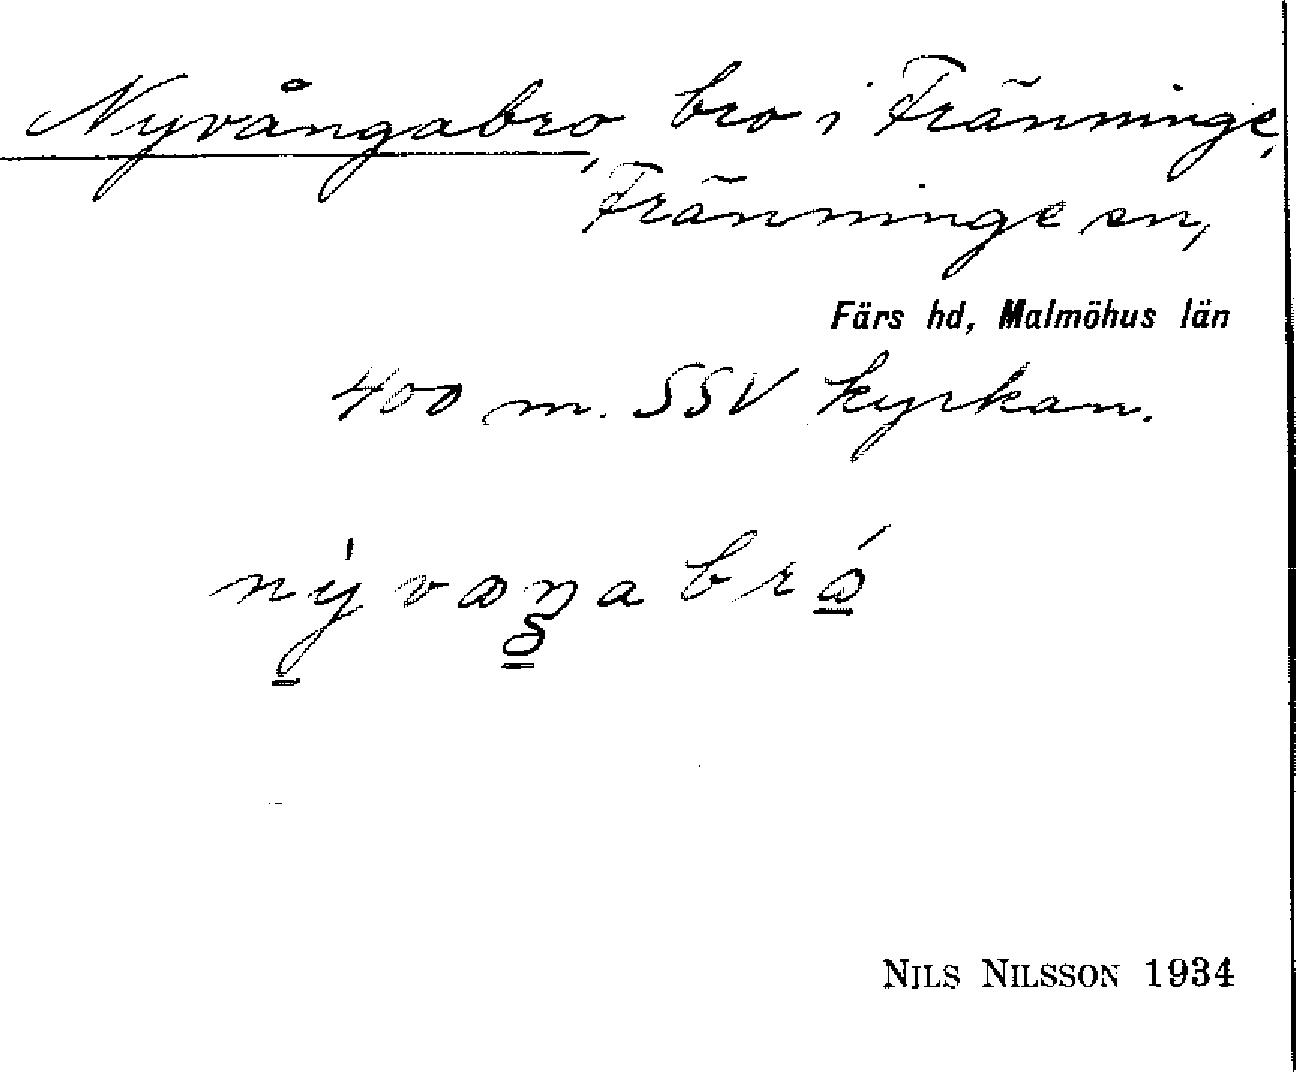 Nyvångabro, bro i Fränninge,
Fränninge sn,
Färs hd, Malmöhus län
400 m. SSV kyrkan.
NILS NILSSON 1934